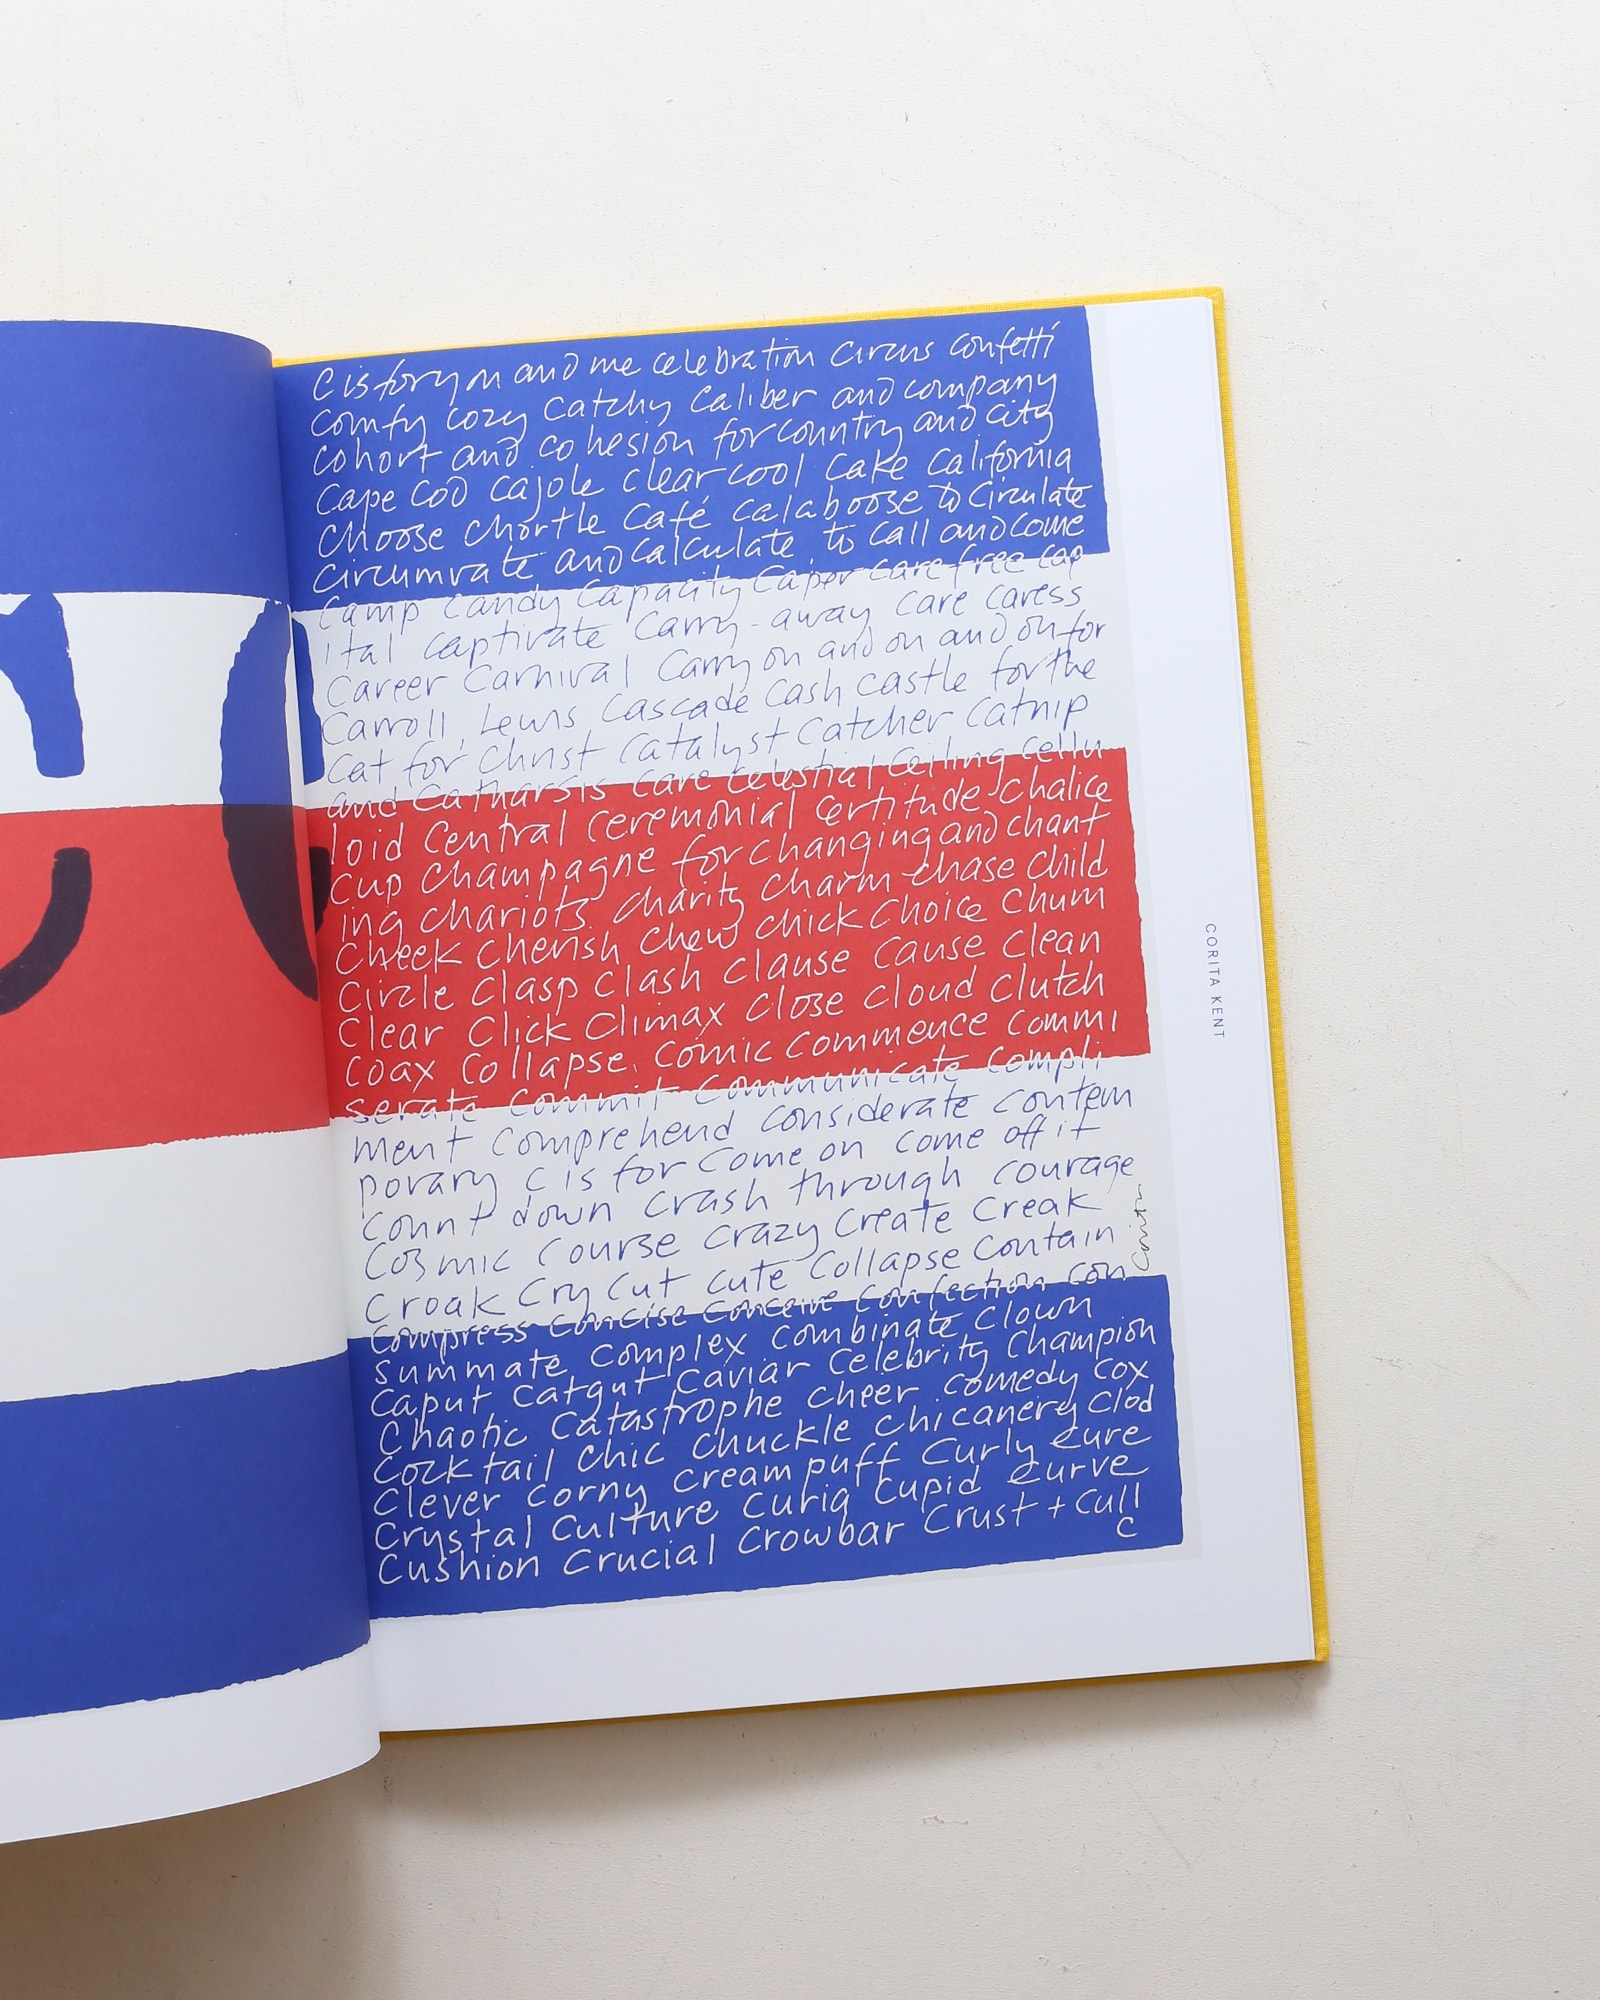 C is for you and me celebration circus confetti
comfy cozy catchy caliber and company
cohort and cohesion for country and city
Cape Cod cajole clear cool cake California
choose chortle café calaboose to circulate
circumvate and calculate to call and come
camp candy capacity caper care free cap
ital captivate carry-away care caress
career carnival carry on and on and on for
Carroll, Lewis cascade cash castle for the
cat for Christ catalyst catcher catnip
and catharsis care celestial ceiling cellu
loid central ceremonial certitude chalice
cup champagne for changing and chant
ing chariots charity charm chase child
cheek cherish chew chick choice chum
circle clasp clash clause cause clean
clear click climax close cloud clutch
coax collapse comic commence commi
serate commit communicate compli
ment comprehend considerate contem
porary C is for come on come off it
count down crash through courage
cosmic course crazy create creak
croak cry cut cute collapse contain
compress concise conceive confection con
summate complex combinate clown
caput catgut caviar celebrity champion
chaotic catastrophe cheer comedy cox
cocktail chic chuckle chicanery clod
clever corny creampuff curly cure
crystal culture curia cupid curve
cushion crucial crowbar crust + cull
C
Corita
CORITA KENT